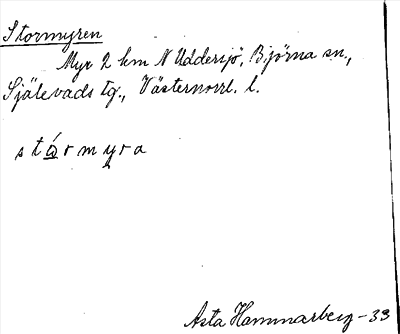 Stormyren
Myr 2 km N Uddersjö, Björna sn.,
Själevads tg., Västernorrl. l.
stώrmyra
Asta Hammarberg - 33